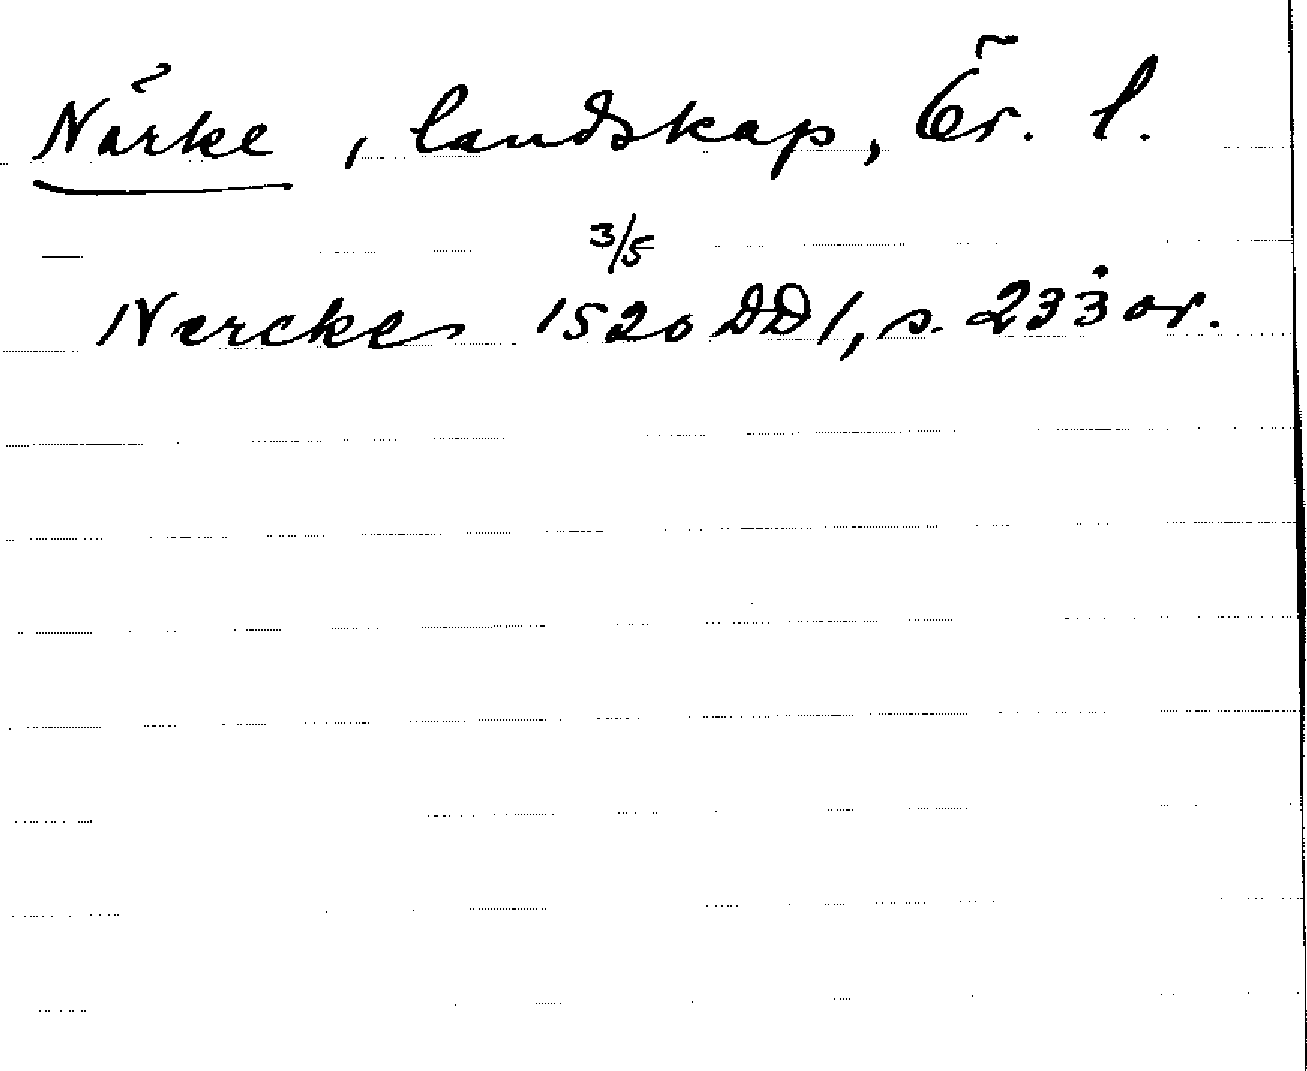 Närke, landskap, Ör. l.
3/5
Nercke 1520 DD 1, s. 233 or.